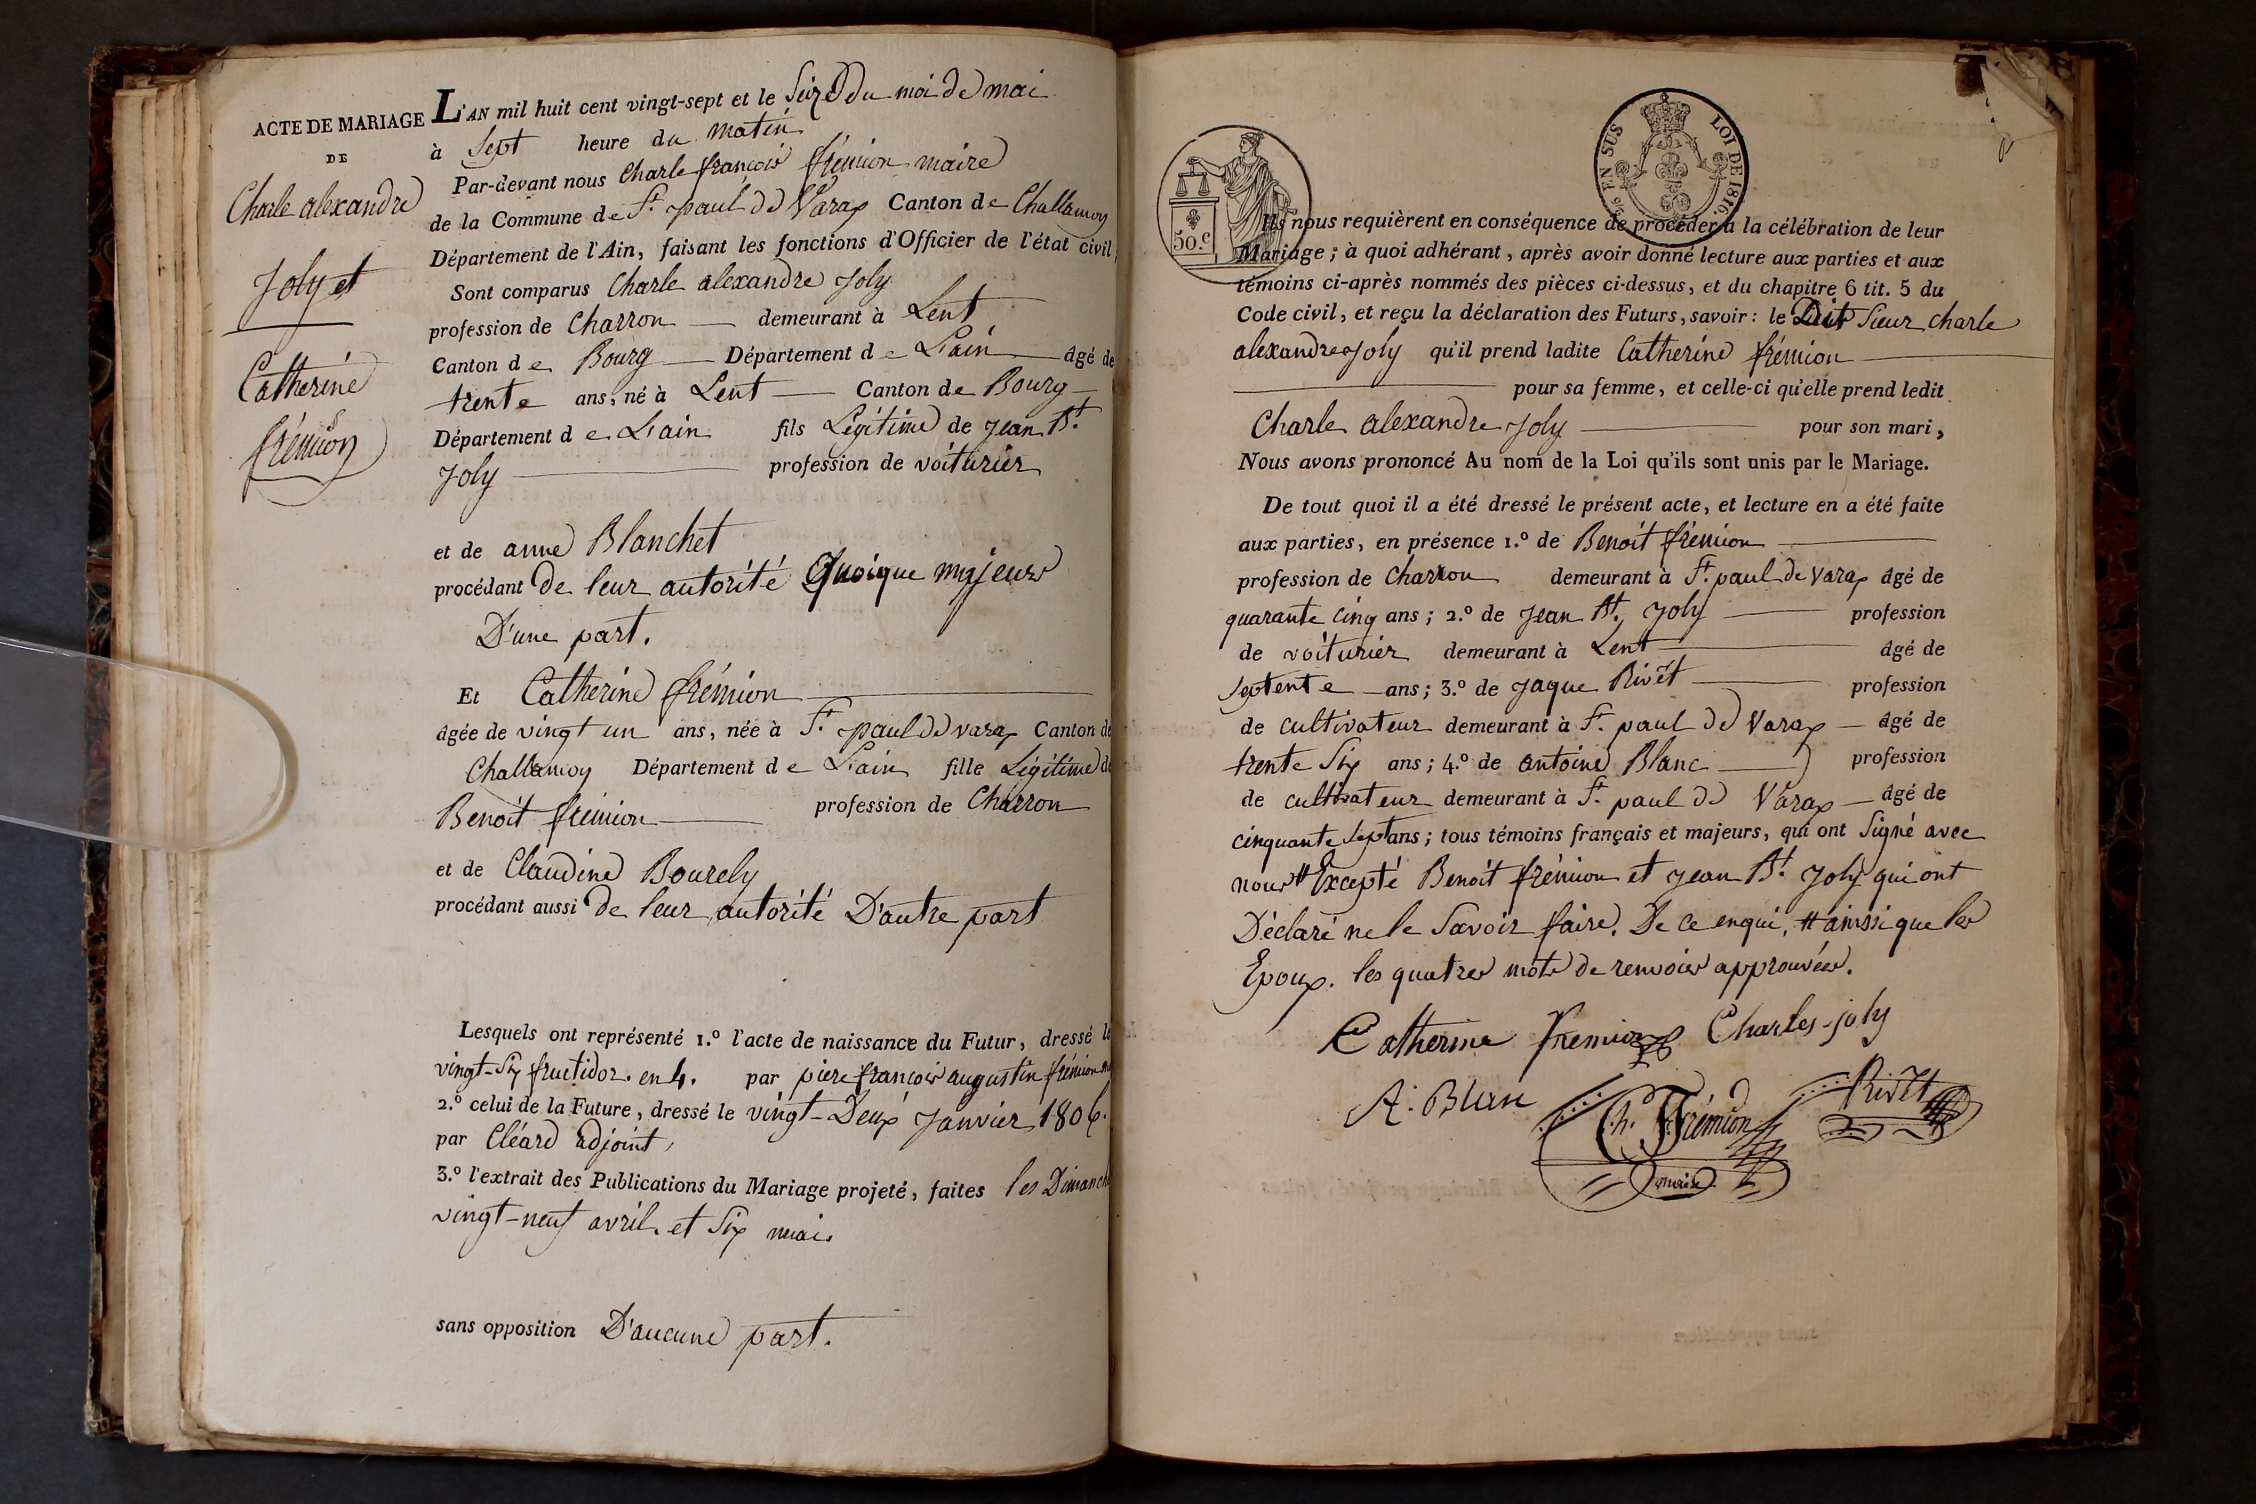 ACTE DE MARIAGE
DE
Charle alexandre
Joly et
Catherine
frémion
L'AN mil huit cent vingt-sept et le Seize du moi de mai
à Sept heure du matin
Par-devant nous Charle françois frémion maire
de la Commune de St. paul de Varax Canton de Challamoy
Département de l'Ain, faisant les fonctions d'Officier de l'état civil,
Sont comparus Charle alexandre Joly
profession de Charron demeurant à Lent
Canton de Bourg Département de L'ain âgé de
trente ans, né à Lent Canton de Bourg
Département de L'ain fils Légitime de jean Bt.
Joly profession de voiturier
et de anne Blanchet
procédant de leur autorité Quoique majeurs
D'une part.
Et Catherine frémion
âgée de vingt un ans, née à St. paul de varax Canton de
Challamoy Département de L'ain fille Légitime de
Benoit frémion profession de Charron
et de Claudine Bourely
procédant aussi de leur autorité D'autre part
Lesquels ont représenté 1.º l'acte de naissance du Futur, dressé le
vingt-Six fructidor. en 4. par piere françois augustin frémion
2.º celui de la Future, dressé le vingt-Deux Janvier 1806.
par Cléard adjoint,
3.º l'extrait des Publications du Mariage projeté, faites les Dimanche
vingt-neuf avril. et Six mai.
sans opposition D'aucune part.
50.c
EN SUS
LOI DE 1816.
Ils nous requièrent en conséquence de procéder à la célébration de leur
Mariage; à quoi adhérant, après avoir donné lecture aux parties et aux
témoins ci-après nommés des pièces ci-dessus, et du chapitre 6 tit. 5 du
Code civil, et reçu la déclaration des Futurs, savoir: le Dit Sieur Charle
alexandre Joly qu'il prend ladite Catherine frémion
pour sa femme, et celle-ci qu'elle prend ledit
Charle alexandre Joly pour son mari,
Nous avons prononcé Au nom de la Loi qu'ils sont unis par le Mariage.
De tout quoi il a été dressé le présent acte, et lecture en a été faite
aux parties, en présence 1.º de Benoit frémion
profession de Charron demeurant à St. paul de varax âgé de
quarante cinq ans; 2.º de Jean Bt. Joly profession
de voiturier demeurant à Lent âgé de
Septente ans; 3.º de Jaque Rivet profession
de cultivateur demeurant à St. paul de Varax âgé de
trente Six ans; 4.º de antoine Blanc profession
de cultivateur demeurant à St. paul de Varax âgé de
cinquante Sept ans; tous témoins français et majeurs, qui ont Signé avec
nous # Excepté Benoit frémion et jean Bt. Joly qui ont
Déclaré ne le Savoir faire. De ce enqui, # ainssi que les
Epoux. les quatres mots de renvoies approuvées.
Catherine fremion Charles joly
A. Blan Ch. Frémion Rivet
maire